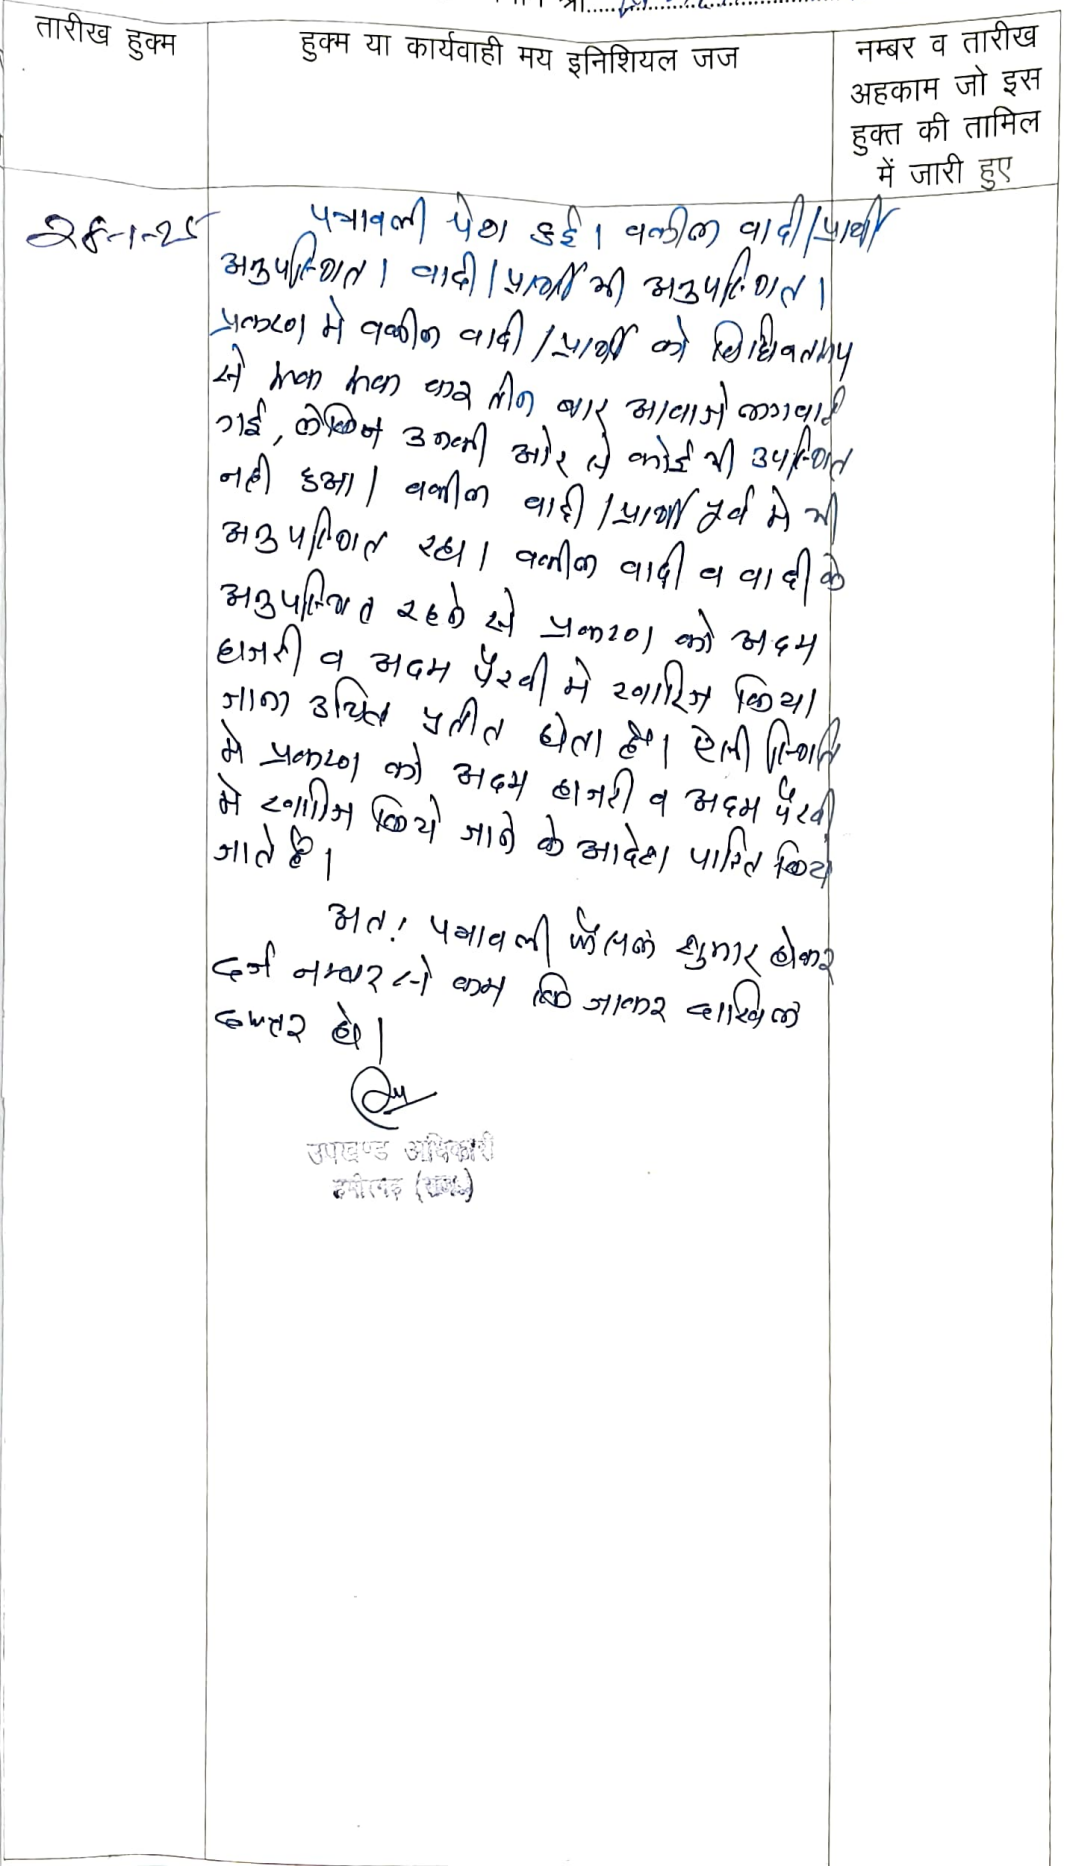 तारीख हुक्म
हुक्म या कार्यवाही मय इनिशियल जज
नम्बर व तारीख
अहकाम जो इस
हुक्त की तामिल
में जारी हुए
28-1-25
पत्रावली पेश हुई। वकील वादी/प्रार्थी
अनुपस्थित। वादी/प्रार्थी भी अनुपस्थित।
प्रकरण मे वकील वादी/प्रार्थी को विधिवत रूप
से रूक रूक कर तीन बार आवाजे लगवाई
गई, लेकिन उनकी ओर से कोई भी उपस्थित
नही हुआ। वकील वादी/प्रार्थी पूर्व मे भी
अनुपस्थित रहा। वकील वादी व वादी के
अनुपस्थित रहने से प्रकरण को अदम
हाजरी व अदम पैरवी मे खारिज किया
जाना उचित प्रतीत होता है। ऐसी स्थिति
मे प्रकरण को अदम हाजरी व अदम पैरवी
मे खारिज किये जाने के आदेश पारित किये
जाते है।
अत: पत्रावली फैसल शुमार होकर
दर्ज नम्बर से कम कि जाकर दाखिल
दफ्तर हो।
उपखण्ड अधिकारी
हमीरगढ़ (राज.)